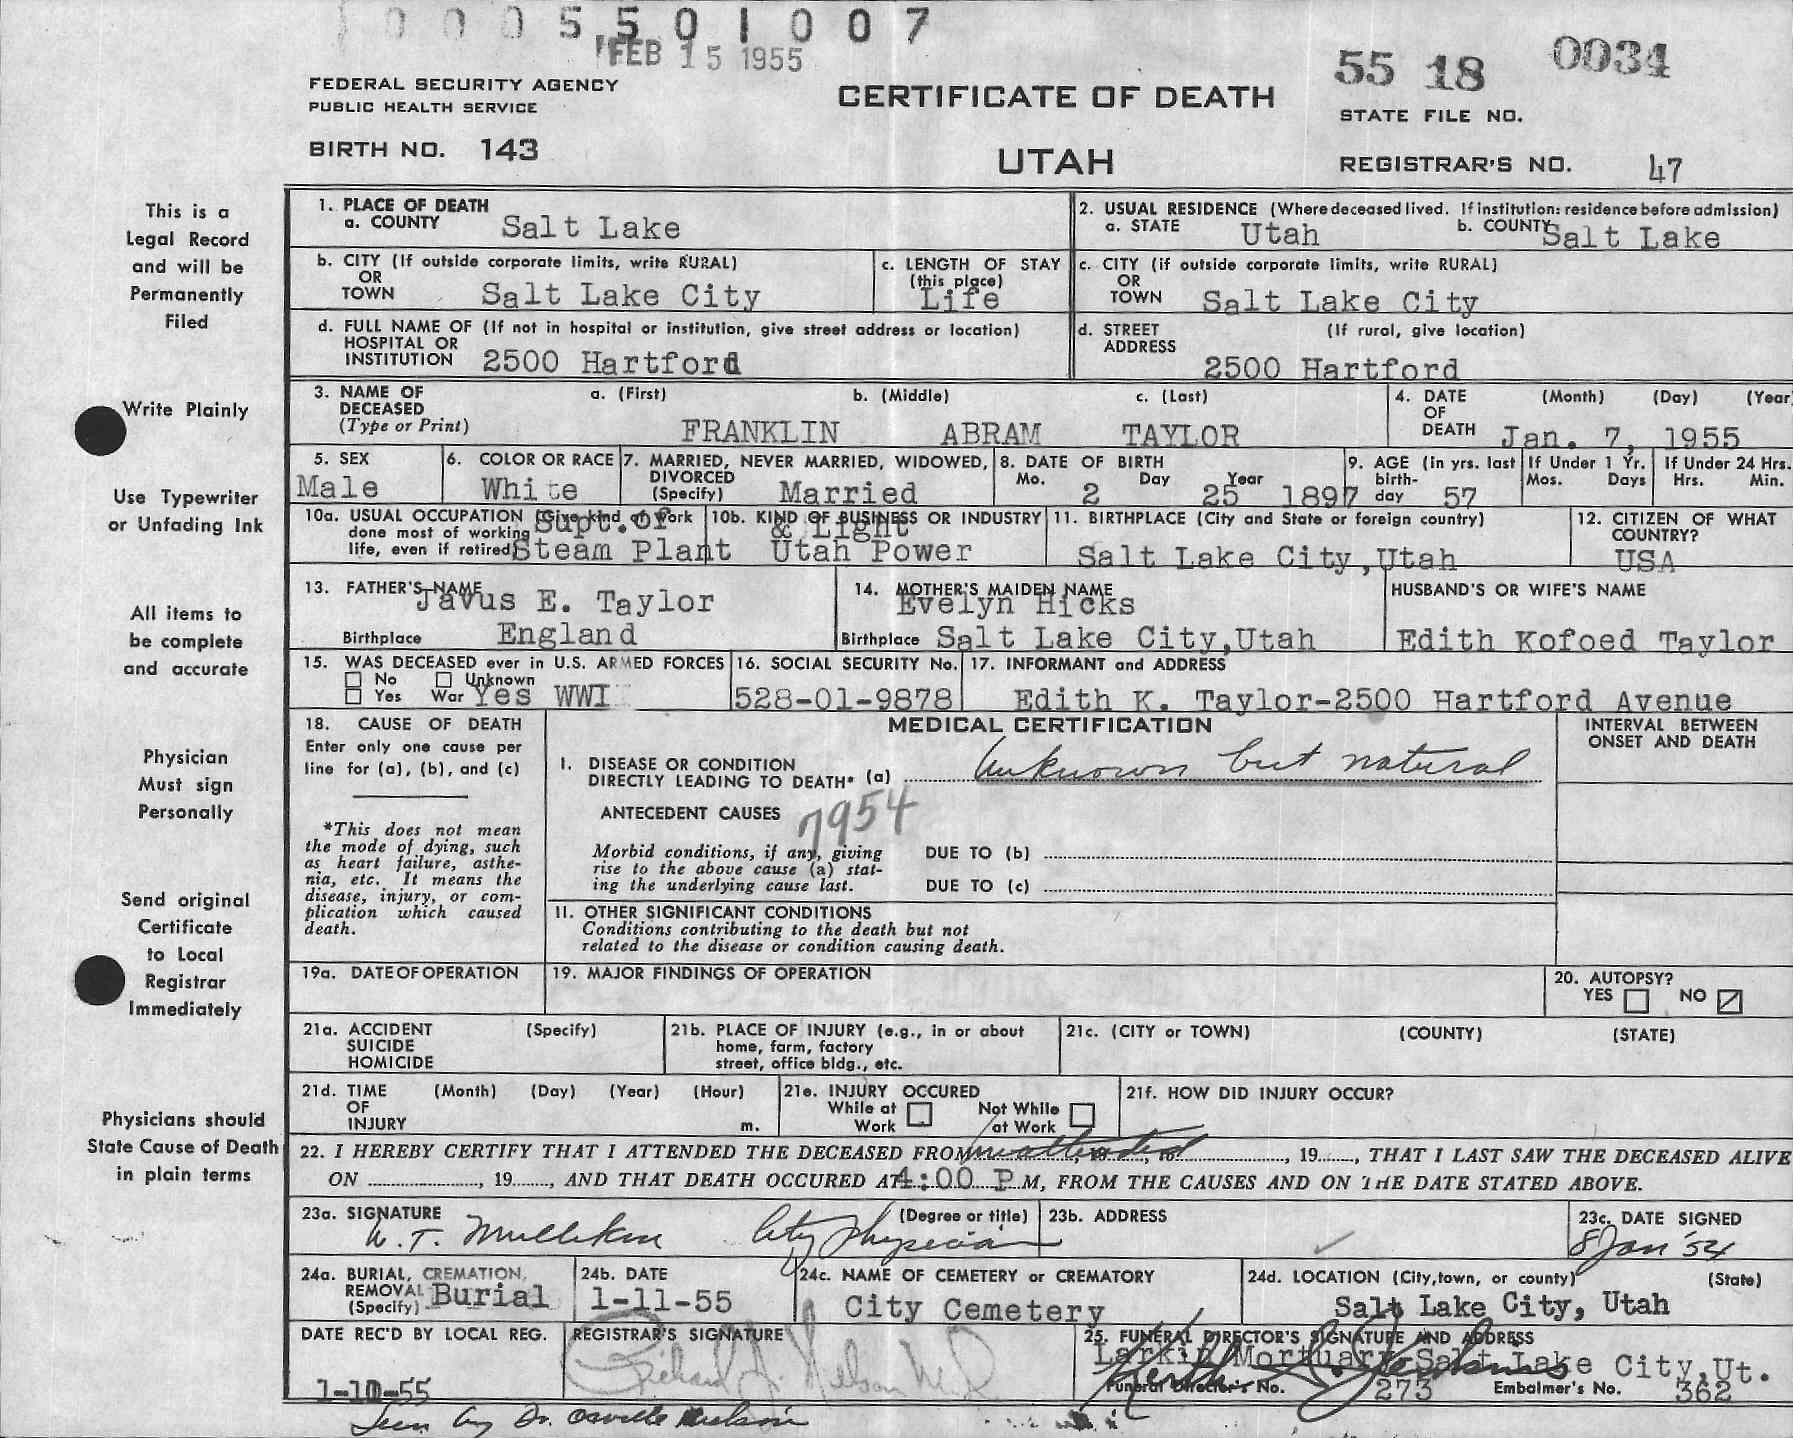 0005501007
FEB 15 1955
FEDERAL SECURITY AGENCY
PUBLIC HEALTH SERVICE
CERTIFICATE OF DEATH
55 18 0034
STATE FILE NO.
BIRTH NO. 143
UTAH
REGISTRAR'S NO. 47
This is a
Legal Record
and will be
Permanently
Filed
Write Plainly
Use Typewriter
or Unfading Ink
All items to
be complete
and accurate
Physician
Must sign
Personally
Send original
Certificate
to Local
Registrar
Immediately
Physicians should
State Cause of Death
in plain terms
1. PLACE OF DEATH
a. COUNTY Salt Lake
2. USUAL RESIDENCE (Where deceased lived. If institution: residence before admission)
a. STATE Utah b. COUNTY Salt Lake
b. CITY (If outside corporate limits, write RURAL)
OR
TOWN Salt Lake City
c. LENGTH OF STAY
(this place)
Life
c. CITY (if outside corporate limits, write RURAL)
OR
TOWN Salt Lake City
d. FULL NAME OF (If not in hospital or institution, give street address or location)
HOSPITAL OR
INSTITUTION 2500 Hartford
d. STREET (If rural, give location)
ADDRESS
2500 Hartford
3. NAME OF a. (First) b. (Middle) c. (Last)
DECEASED
(Type or Print) FRANKLIN ABRAM TAYLOR
4. DATE (Month) (Day) (Year
OF
DEATH Jan. 7, 1955
5. SEX
Male
6. COLOR OR RACE
White
7. MARRIED, NEVER MARRIED, WIDOWED,
DIVORCED
(Specify) Married
8. DATE OF BIRTH
Mo. Day Year
2 25 1897
9. AGE (in yrs. last
birth-
day 57
If Under 1 Yr.
Mos. Days
If Under 24 Hrs.
Hrs. Min.
10a. USUAL OCCUPATION (Give kind of work
done most of working
life, even if retired
Supt. of
Steam Plant
10b. KIND OF BUSINESS OR INDUSTRY
& Light
Utah Power
11. BIRTHPLACE (City and State or foreign country)
Salt Lake City,Utah
12. CITIZEN OF WHAT
COUNTRY?
USA
13. FATHER'S NAME
Javus E. Taylor
Birthplace England
14. MOTHER'S MAIDEN NAME
Evelyn Hicks
Birthplace Salt Lake City,Utah
HUSBAND'S OR WIFE'S NAME
Edith Kofoed Taylor
15. WAS DECEASED ever in U.S. ARMED FORCES
No Unknown
Yes War Yes WWI
16. SOCIAL SECURITY No.
528-01-9878
17. INFORMANT and ADDRESS
Edith K. Taylor-2500 Hartford Avenue
18. CAUSE OF DEATH
Enter only one cause per
line for (a), (b), and (c)
*This does not mean
the mode of dying, such
as heart failure, asthe-
nia, etc. It means the
disease, injury, or com-
plication which caused
death.
MEDICAL CERTIFICATION
INTERVAL BETWEEN
ONSET AND DEATH
I. DISEASE OR CONDITION
DIRECTLY LEADING TO DEATH* (a) Unknown but natural
ANTECEDENT CAUSES
7954
Morbid conditions, if any, giving
rise to the above cause (a) stat-
ing the underlying cause last.
DUE TO (b)
DUE TO (c)
II. OTHER SIGNIFICANT CONDITIONS
Conditions contributing to the death but not
related to the disease or condition causing death.
19a. DATE OF OPERATION
19. MAJOR FINDINGS OF OPERATION
20. AUTOPSY?
YES NO
21a. ACCIDENT (Specify)
SUICIDE
HOMICIDE
21b. PLACE OF INJURY (e.g., in or about
home, farm, factory
street, office bldg., etc.
21c. (CITY or TOWN) (COUNTY) (STATE)
21d. TIME (Month) (Day) (Year) (Hour)
OF
INJURY m.
21e. INJURY OCCURED
While at Not While
Work at Work
21f. HOW DID INJURY OCCUR?
22. I HEREBY CERTIFY THAT I ATTENDED THE DECEASED FROM unattended, 19......, THAT I LAST SAW THE DECEASED ALIVE
ON ..................., 19......., AND THAT DEATH OCCURED AT 4:00 P.M, FROM THE CAUSES AND ON THE DATE STATED ABOVE.
23a. SIGNATURE (Degree or title)
W. T. Mullikin City Physician
23b. ADDRESS
23c. DATE SIGNED
8 Jan '54
24a. BURIAL, CREMATION,
REMOVAL
(Specify) Burial
24b. DATE
1-11-55
24c. NAME OF CEMETERY or CREMATORY
City Cemetery
24d. LOCATION (City,town, or county) (State)
Salt Lake City, Utah
DATE REC'D BY LOCAL REG.
1-10-55
REGISTRAR'S SIGNATURE
Richard J. Nelson M.D.
25. FUNERAL DIRECTOR'S SIGNATURE AND ADDRESS
Larkin Mortuary-Salt Lake City,Ut.
Funeral Director's No. 273 Embalmer's No. 362
Seen by Dr. Orville Nelson